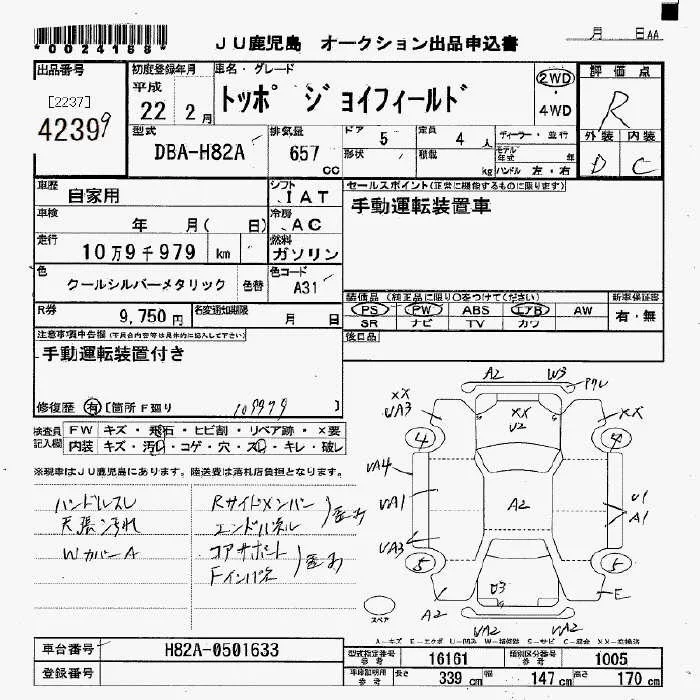 *0024188*
JU鹿児島 オークション出品申込書
月 日 AA
出品番号
[2237]
42399
初度登録年月
平成
22 2月
車名・グレード
トッポ ジョイフィールド
2WD
・
4WD
評価点
R
外装 内装
D C
型式
DBA-H82A
排気量
657
CC
ドア 5
形状
定員 4 人
積載 kg
ディーラー・並行
モデル年式 年
ハンドル 左・右
車歴
自家用
シフト
IAT
車検
年 月( 日)
冷房
AC
走行
10万9千979 km
燃料
ガソリン
色
クールシルバーメタリック
色替
色コード
A31
R券
9,750円
名変通知期限
月 日
セールスポイント(正常に機能するものに限ります)
手動運転装置車
装備品(純正品に限り○をつけてください)
新車保証書
PS PW ABS エアB AW
SR ナビ TV カワ
有・無
後日品
注意事項申告欄
手動運転装置付き
修復歴 有 [箇所 F廻り ]
109979
検査員
記入欄
FW キズ・飛石・ヒビ割・リペア跡・×要
内装 キズ・汚レ・コゲ・穴・スレ・キレ・破レ
※現車はJU鹿児島にあります。陸送費は落札店負担となります。
ハンドルスレ
天張汚れ
WカバーA
Rサイドメンバー
エンドパネル
コアサポート
Fインパネ
A2 W3
XX
UA3
XX
U2
XX
4 4
UA4
UA1
UA3
A2
U1
A1
5 5
U3
A2
E
UA2 UA2
スペア
A-キズ E-エクボ U-凹み W-補修跡 S-サビ C-腐食 XX-交換済
車台番号 H82A-0501633
登録番号
型式指定番号
参考
16161
類別区分番号
参考
1005
車庫証明用
参考
長さ 339 cm 幅 147 cm 高さ 170 cm